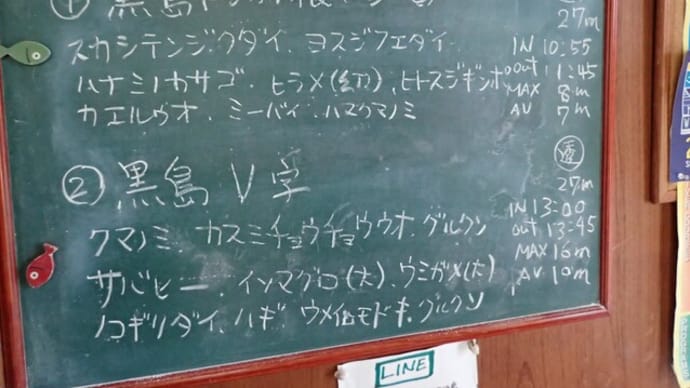 ① 黒島
27m
スカシテンジクダイ. ヨスジフエダイ. IN 10:55
ハナミノカサゴ. ヒラメ(幼). ヒトスジギンポ. out 11:45
カエルウオ. ミーバイ. ハマクマノミ MAX 8m
AV 7m
② 黒島 V字 透
27m
クマノミ. カスミチョウチョウウオ. グルクン IN 13:00
out 13:45
サバヒー. イソマグロ(大). ウミガメ(大) MAX 16m
ノコギリダイ. ハギ. ウメイロモドキ. グルクン AV 10m
LINE